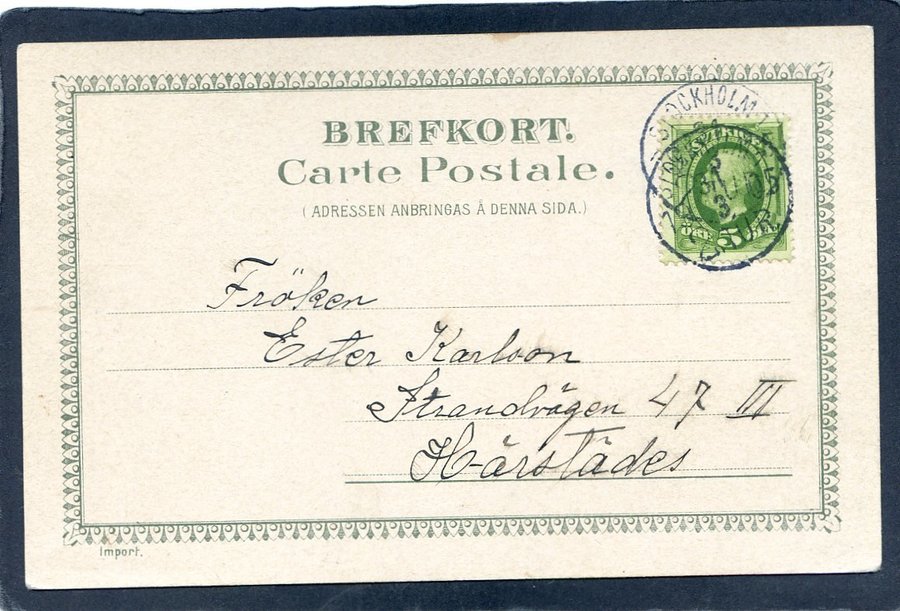 BREFKORT.
Carte Postale.
(ADRESSEN ANBRINGAS Å DENNA SIDA.)
STOCKHOLM
Fröken
Ester Karlson
Strandvägen 47 III
Härstädes
Import.